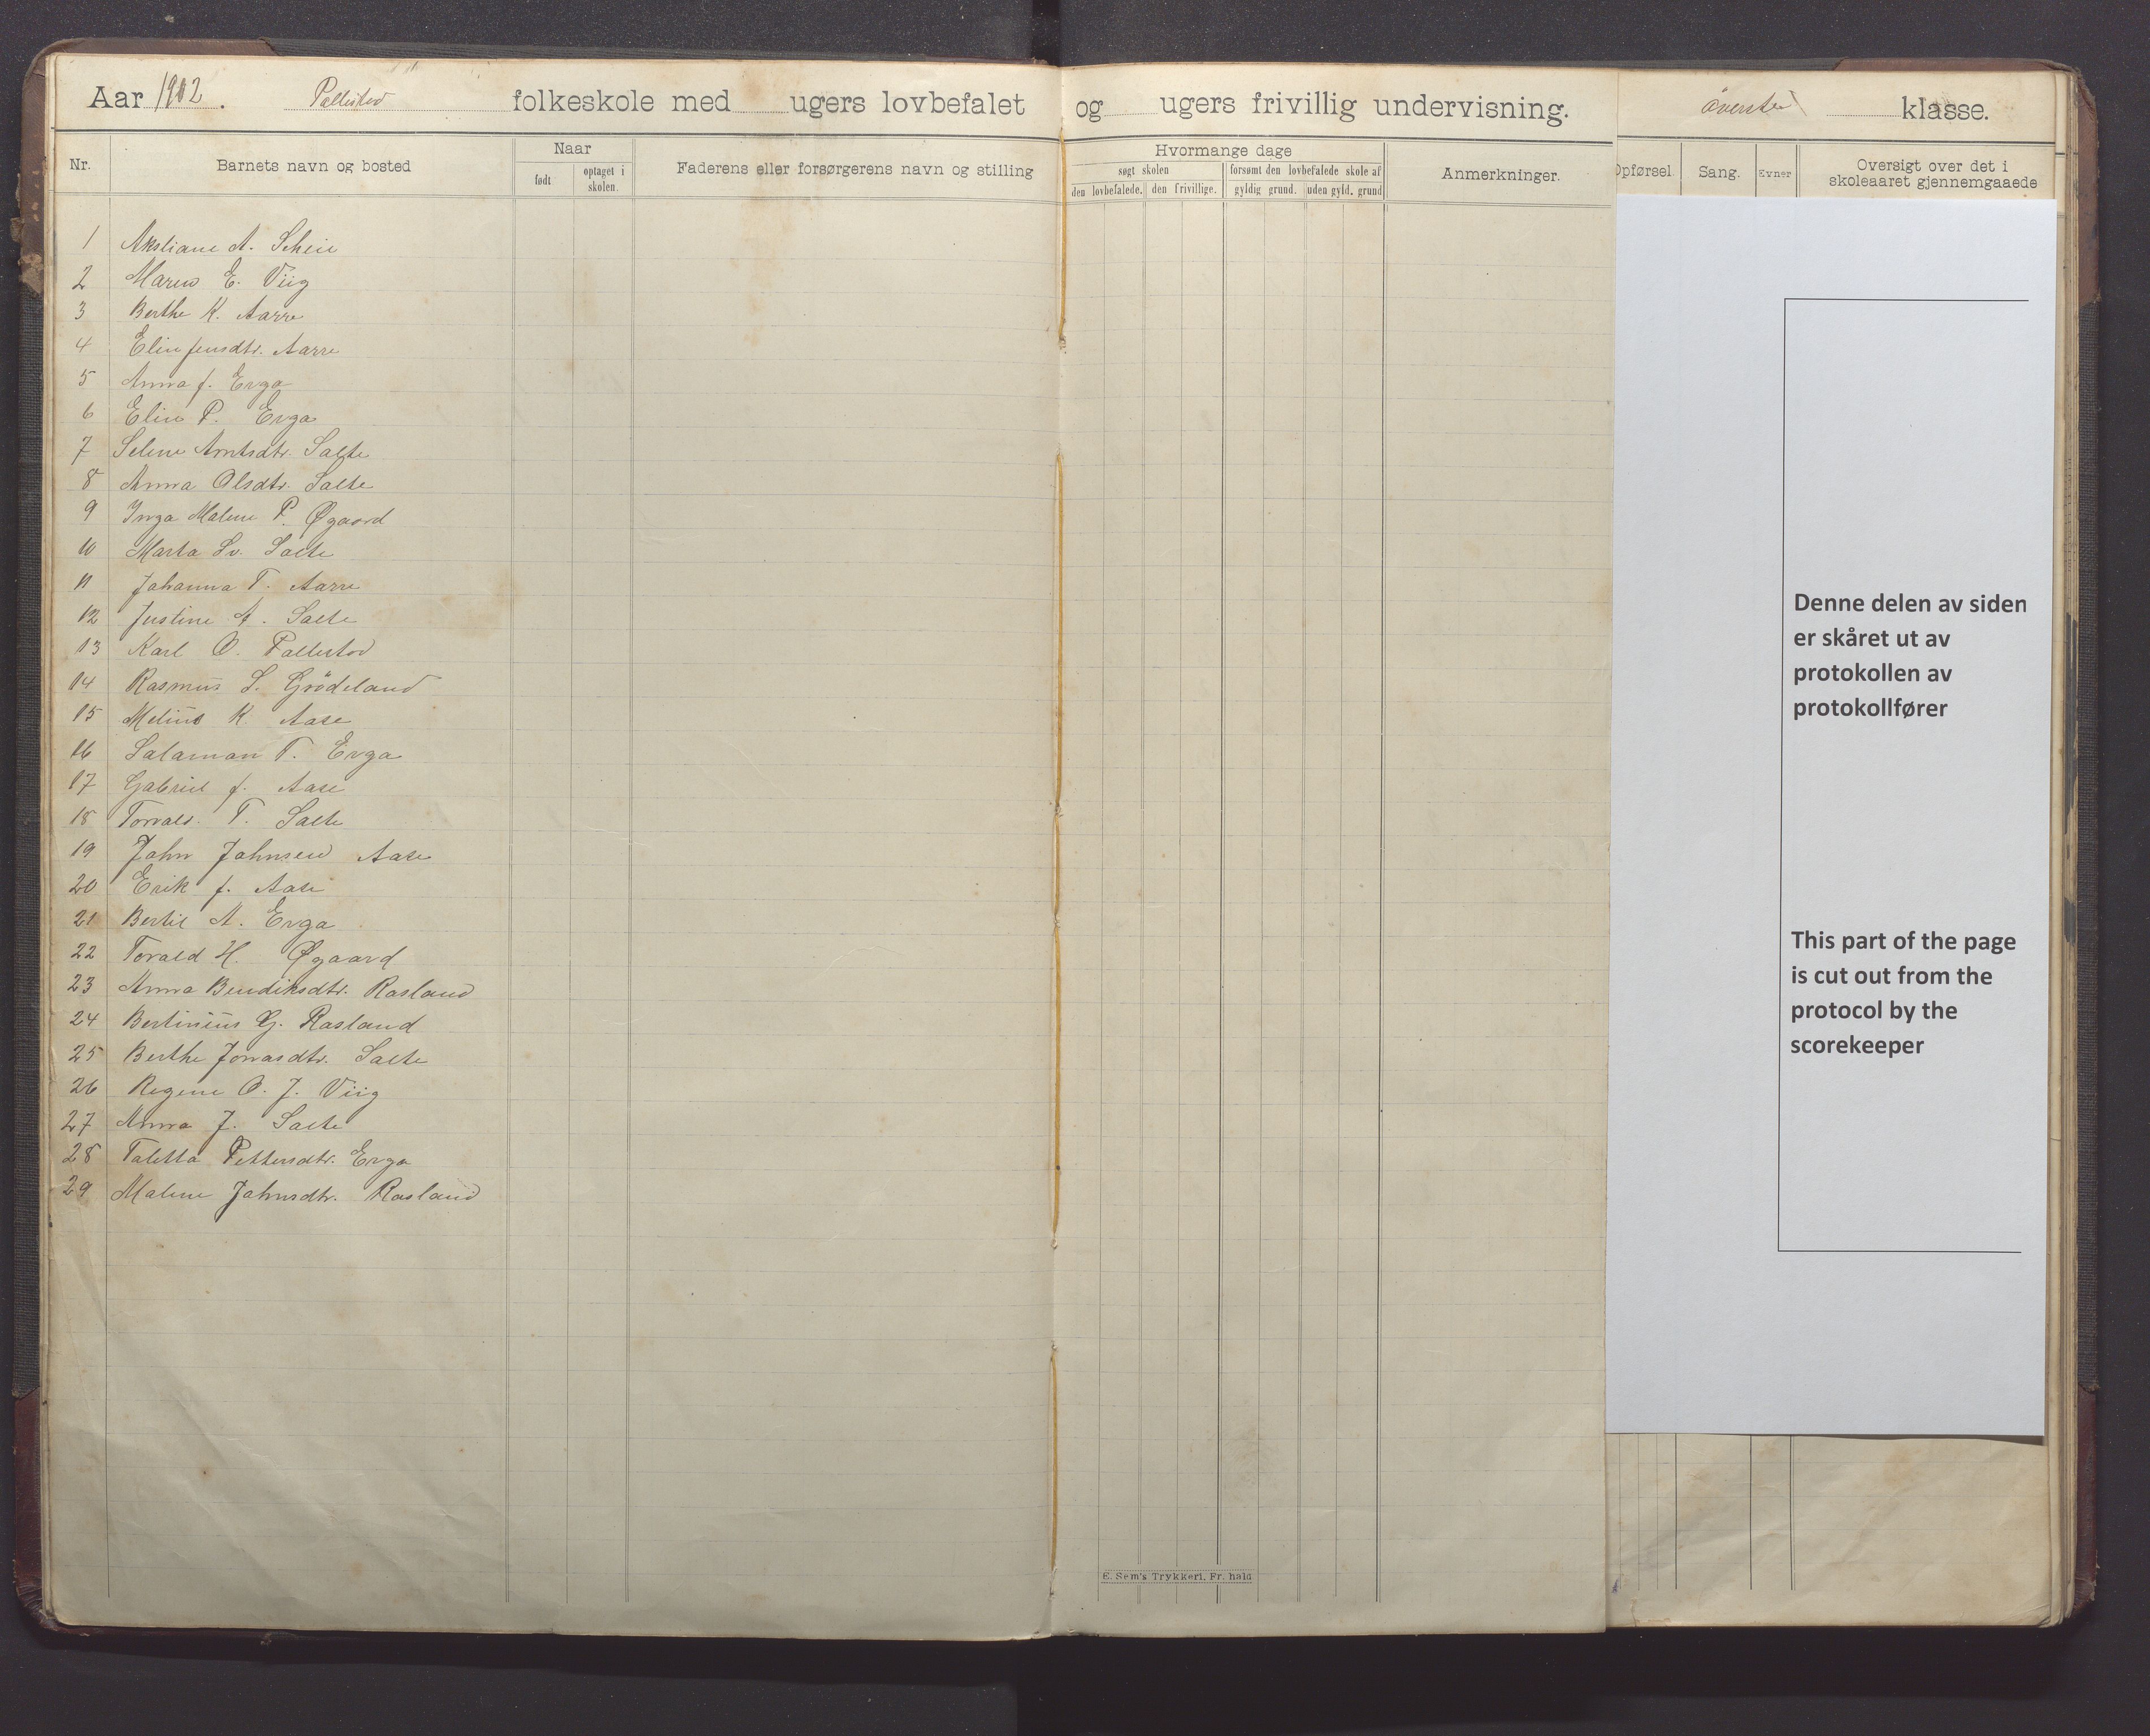 Aar 1902. Pollestad folkeskole med ugers lovbefalet og ugers frivillig undervisning. överste klasse.
Nr. Barnets navn og bosted Naar Faderens eller forsørgerens navn og stilling Hvormange dage Anmerkninger. Opførsel Sang. Evner Oversigt over det i
skoleaaret gjennemgaaede
født optaget i
skolen. søgt skolen forsømt den lovbefalede skole af
den lovbefalede. den frivillige. gyldig grund. uden gyld. grund
1 Aksliane A. Scheie
2 Maren E. Viig
3 Berthe K. Aarre
4 Elin Jensdtr. Aarre
5 Anna J. Erga
6 Elin P. Erga
7 Selene Arntsdtr. Salte
8 Anna Olsdtr. Salte
9 Inga Malene P. Øgaard
10 Marta Sv. Salte
11 Johanna T. Aarre
12 Justine A. Salte
13 Karl O. Pollestad
14 Rasmus S. Grödeland
15 Melius K. Aase
16 Salamon T. Erga
17 Gabriel J. Aase
18 Torvald. T. Salte
19 John Johnsen Aase
20 Erik J. Aase
21 Bertil A. Erga
22 Torald H. Øgaard
23 Anna Bendiksdtr. Rosland
24 Bertinius G. Rosland
25 Berthe Jonasdtr. Salte
26 Regine O. J. Viig
27 Anna J. Salte
28 Taletta Pettersdtr. Erga
29 Malene Johnsdtr. Rosland
E. Sem's Trykkeri, Fr. hald
Denne delen av siden
er skåret ut av
protokollen av
protokollfører
This part of the page
is cut out from the
protocol by the
scorekeeper